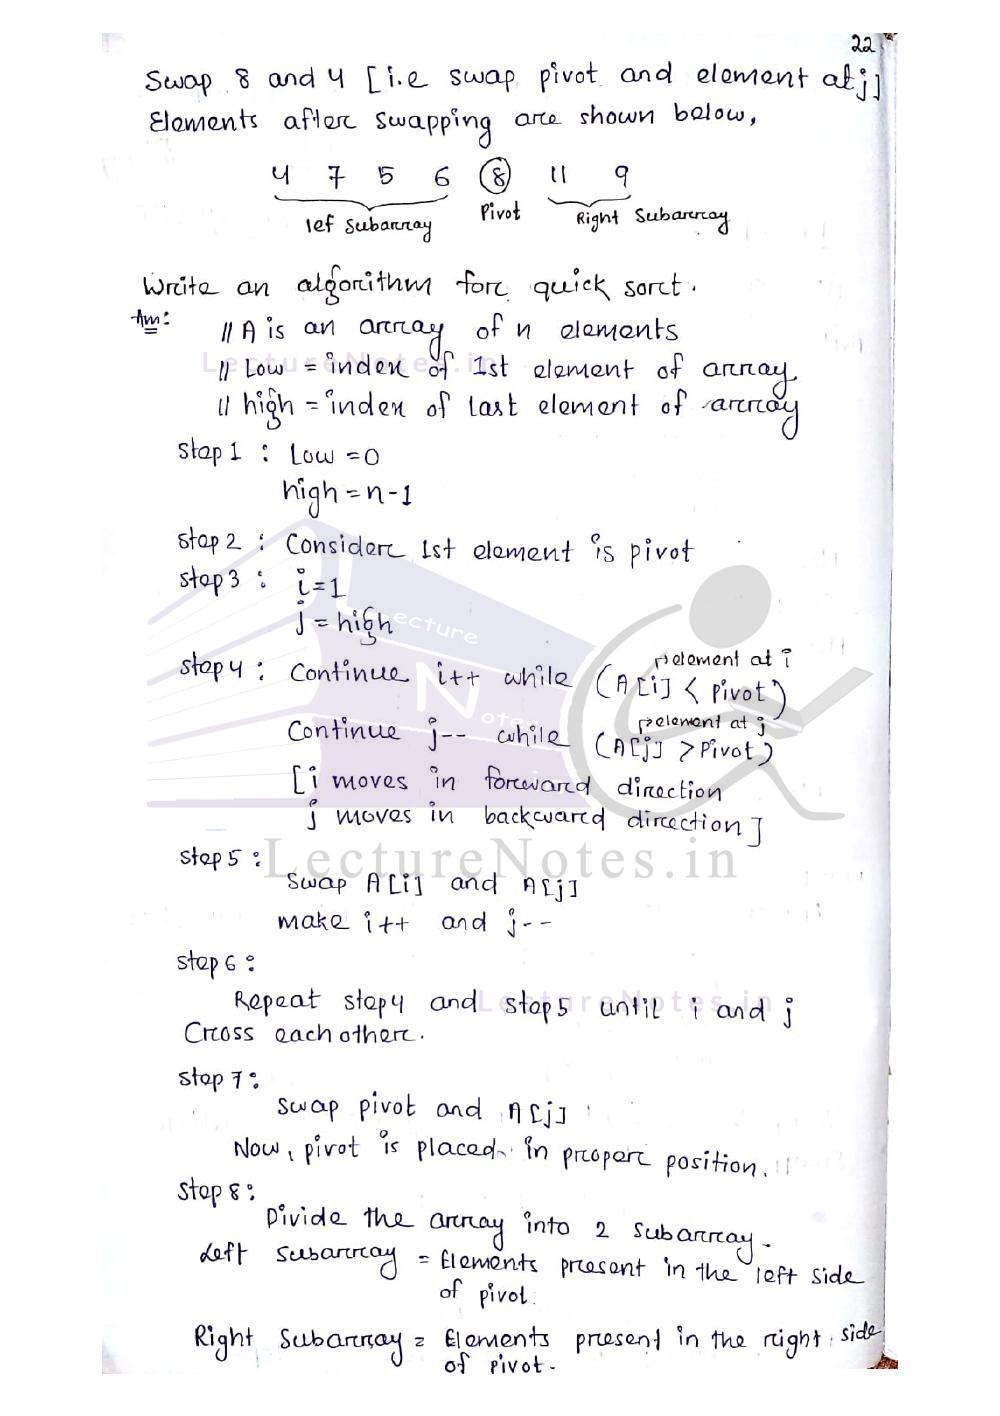 22
Swap 8 and 4 [i.e swap pivot and element at j]
Elements after swapping are shown below,
4 7 5 6 8 11 9
lef Subarray Pivot Right Subarray
Write an algorithm for quick sort.
Ans:
// A is an array of n elements
LectureNotes.in
// Low = index of 1st element of array
// high = index of last element of array
Step 1 : Low = 0
high = n-1
Step 2 : Consider 1st element is pivot
Step 3 : i=1
j = high
Lecture
Notes
→ element at i
Step 4 : Continue i++ while (A[i] < pivot)
→ element at j
Continue j-- while (A[j] > Pivot)
[i moves in forward direction
j moves in backward direction]
Step 5 :
LectureNotes.in
Swap A[i] and A[j]
make i++ and j--
Step 6 :
Repeat step 4 and step 5 until i and j
LectureNotes.in
Cross each other.
Step 7 :
Swap pivot and A[j]
Now, pivot is placed in proper position.
Step 8 :
Divide the array into 2 subarray.
Left Subarray = Elements present in the left side
of pivot
Right Subarray = Elements present in the right side
of pivot.